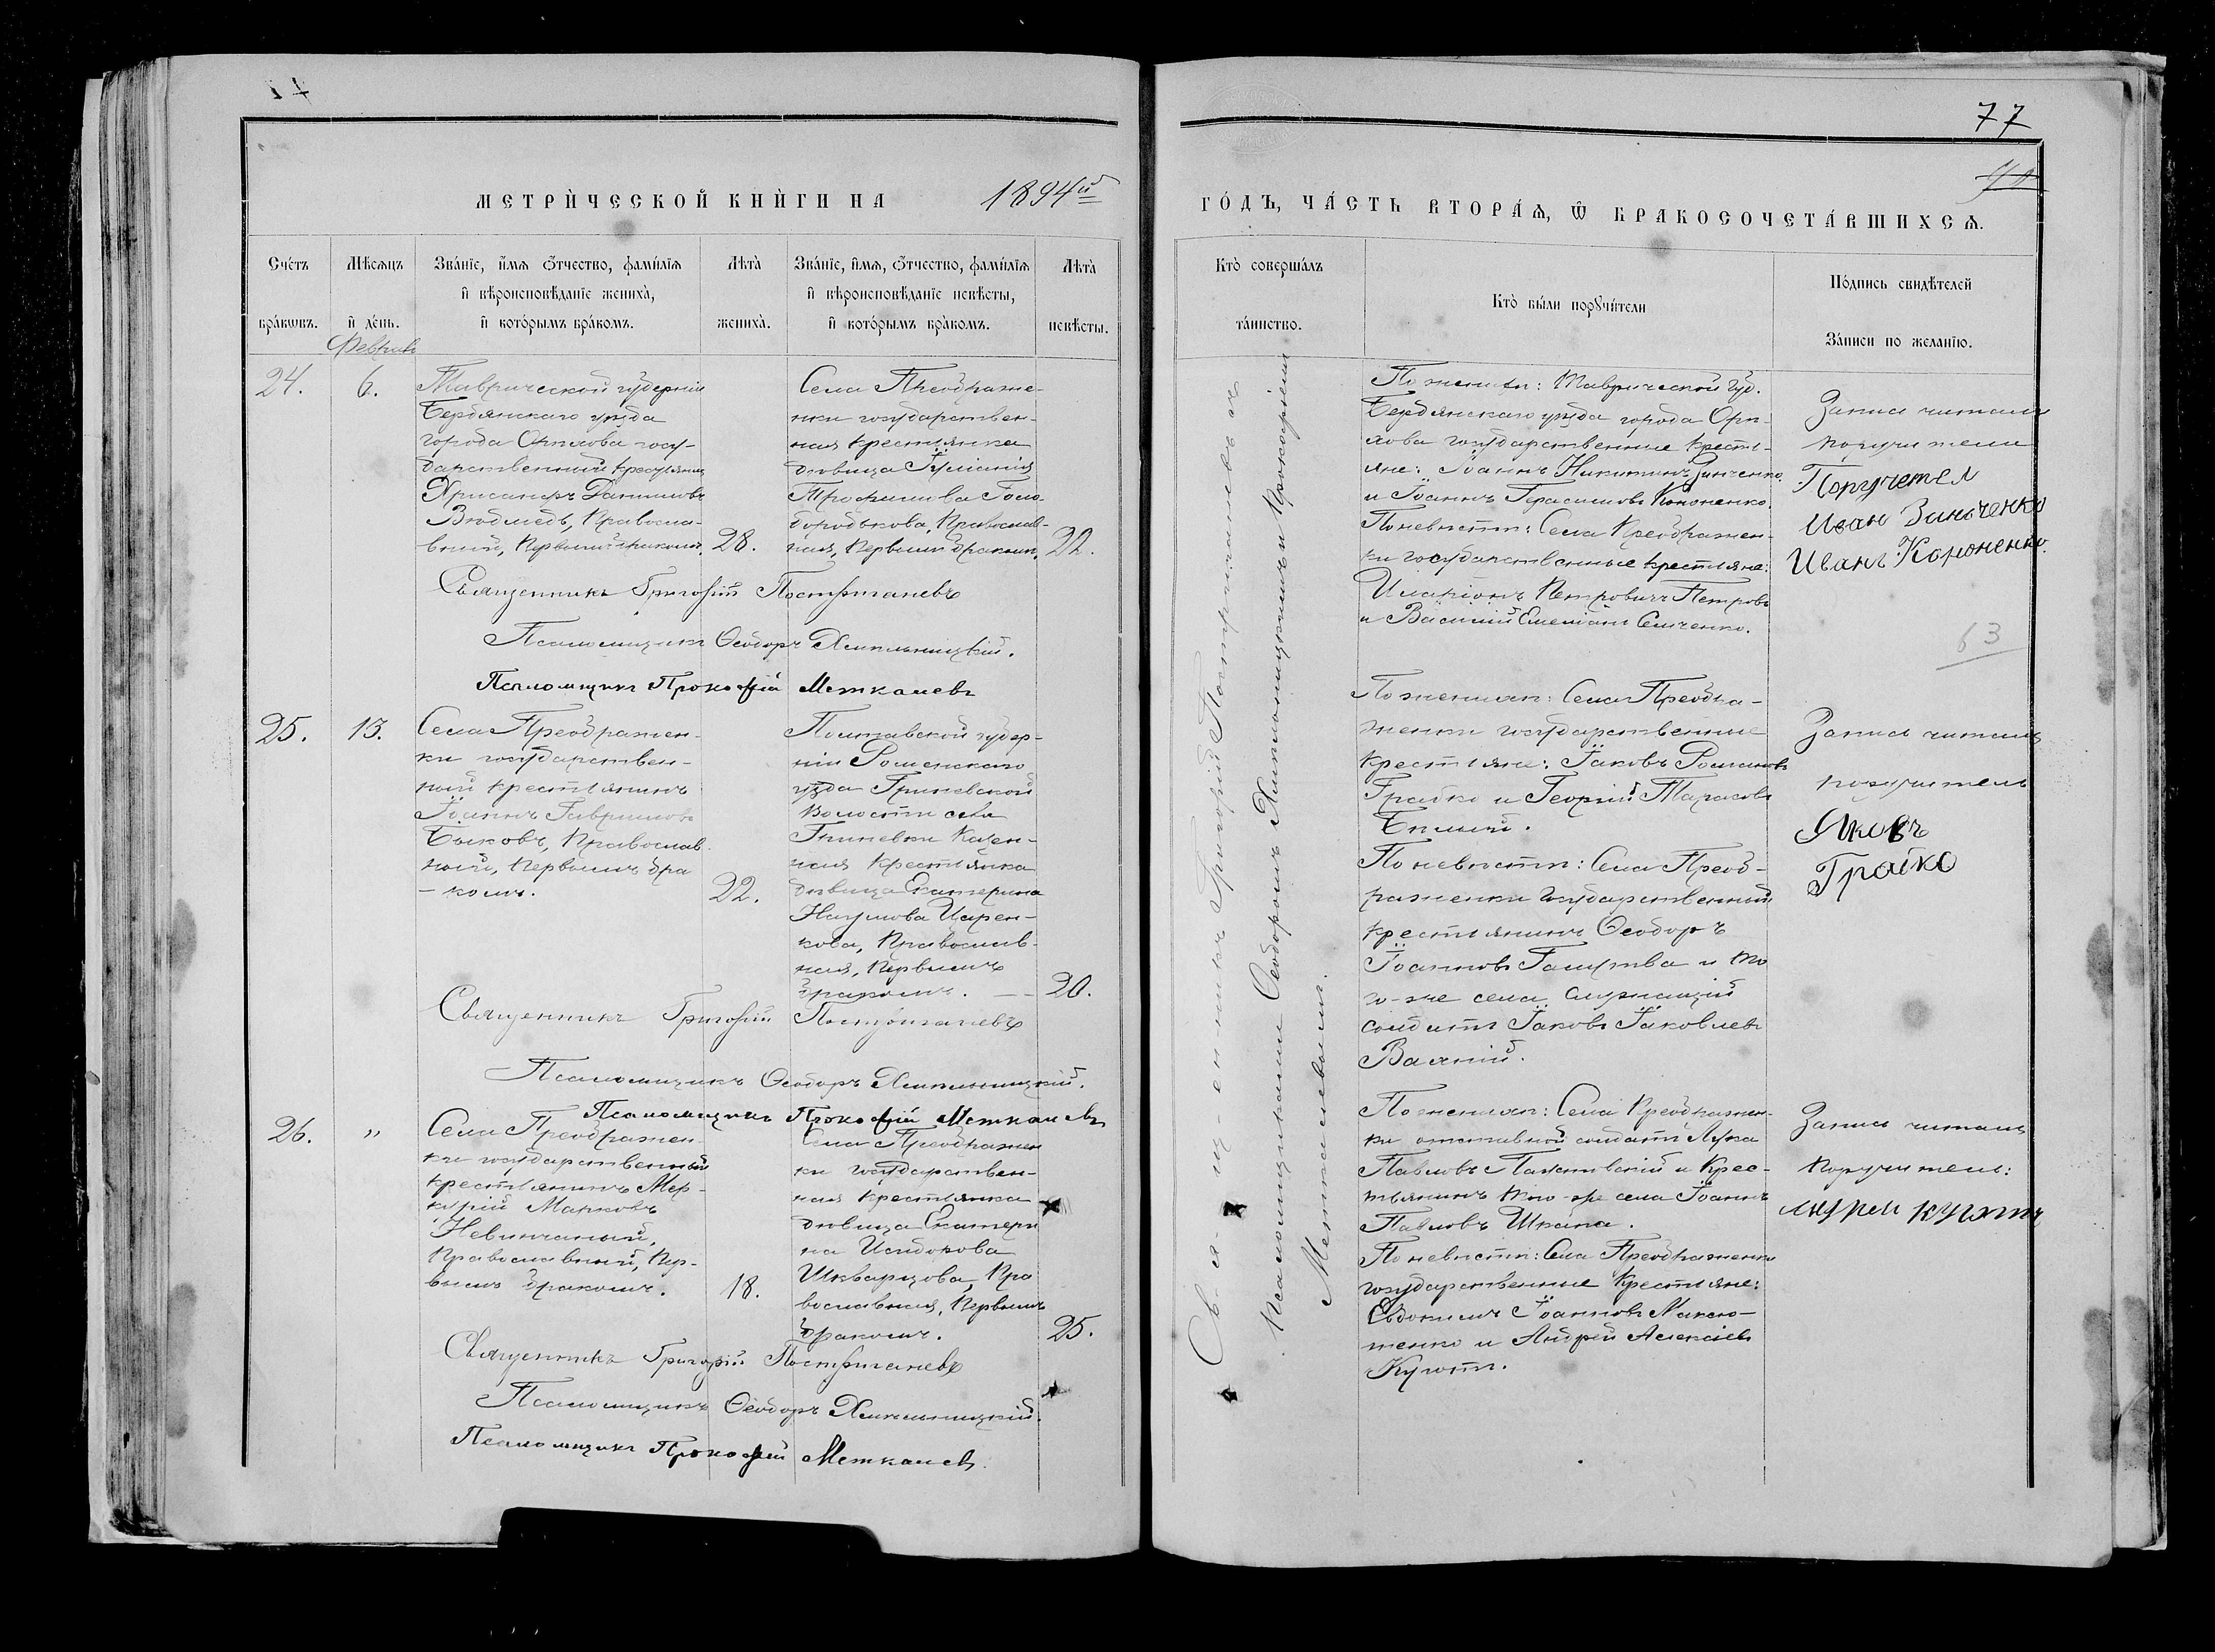 77
МЕТРИ́ЧЕСКОЙ КНИ́ГИ НА 1894й
ГО́ДЪ, ЧА́СТЬ ВТОРА́Ѧ, Ѿ БРАКОСОЧЕТА́ВШИХСѦ.
Сче́тъ бра́кѡвъ.
Мѣ́сѧцъ и҆ де́нь.
Зва́нїе, и҆́мѧ ѻ҆́тчество, фами́лїѧ
и҆ вѣроисповѣ́данїе жениха̀,
и҆ кото́рымъ бра́комъ.
Лѣта̀ жениха̀.
Зва́нїе, и҆́мѧ, ѻ҆́тчество, фами́лїѧ
и҆ вѣроисповѣ́данїе невѣ́сты,
и҆ кото́рымъ бра́комъ.
Лѣта̀ невѣ́сты.
Кто̀ соверша́лъ
та́инство.
Кто̀ бы́ли порꙋчи́тели
По́дпись свидѣ́телей
За́писи по жела́нїю.
Февраль
24.
6.
Таврической губерніи
Бердянскаго уѣзда
города Орѣхова госу-
дарственный крестьянинъ
Хрисанфъ Даниловъ
Православ-
вный, первымъ бракомъ,
28.
Села Преображе-
нки государствен-
ная крестьянка
дѣвица Іуліанія
Трофимова Голо-
бородькова, Православ-
ная, первымъ бракомъ,
22.
Священникъ Григорій Пострыганевъ
Псаломщикъ Ѳеодоръ Хмѣльницкій.
Псаломщикъ Прокофій Меткалевъ
По женихѣ: Таврической губ.
Бердянскаго уѣзда города Орѣ-
хова государственные кресть-
яне: Іоаннъ Никитинъ Зинченко
и Іоаннъ Герасимовъ Кононенко.
По невѣстѣ: Села Преображен-
ки государственные крестьяне:
Иларіонъ Петровичъ Петровъ
и Василій Емеліанъ Семченко.
Запись читали
поручители
Поручетел
Иван Зинченко
Иванъ Кононенко.
63
25.
13.
Села Преображен-
ки государствен-
ный крестьянинъ
Іоаннъ Гавриловъ
Быковъ, Православ-
ный, первымъ бра
- комъ.
22.
Полтавской губер-
ніи Роменскаго
уѣзда Гриневской
волости села
Гриневки казен-
ная крестьянка
дѣвица Екатерина
Наумова Царен-
кова, Православ-
ная, первымъ
бракомъ. —
20.
Священникъ Григорій Пострыганевъ
Псаломщикъ Ѳеодоръ Хмѣльницкій.
Псаломщикъ Прокофій Меткалевъ
По женихѣ: Села Преобра-
женки государственные
крестьяне: Іаковъ Романовъ
Грайко и Георгій Тарасовъ
Бѣлый.
По невѣстѣ: Села Преоб-
раженки государственный
крестьянинъ Ѳеодоръ
Іоанновъ и то
го-же села служащій
солдатъ Іаковъ Іаковлевъ
Запись читалъ
поручитель
Яковъ
Грайко
26.
"
Села Преображен-
ки государственный
крестьянинъ Мер-
курій Марковъ
Невинчаный,
Православный, пер-
вымъ бракомъ.
18.
Села Преображен
ки государствен-
ная крестьянка
дѣвица Екатери
на Исидорова
Шкварцова, Пра
вославная, первымъ
бракомъ.
25.
Священникъ Григорій Пострыганевъ
Псаломщикъ Ѳеодоръ Хмѣльницкій.
Псаломщикъ Прокофій Меткалевъ
По женихѣ: Села Преображен-
ки отставной солдатъ Лука
Павловъ и крес-
тьянинъ того-же села Іоаннъ
Павловъ Шкапа.
По невѣстѣ: Села Преображенки
государственные крестьяне:
Евдокимъ Іоанновъ Максю-
тенко и Андрей Алексіевъ
Куготъ.
Запись читалъ
поручитель:
Андреи
Священникъ Григорій Пострыганевъ съ
псаломщиками Ѳеодоромъ Хмѣльницкимъ и Прокофіемъ
Меткалевымъ.